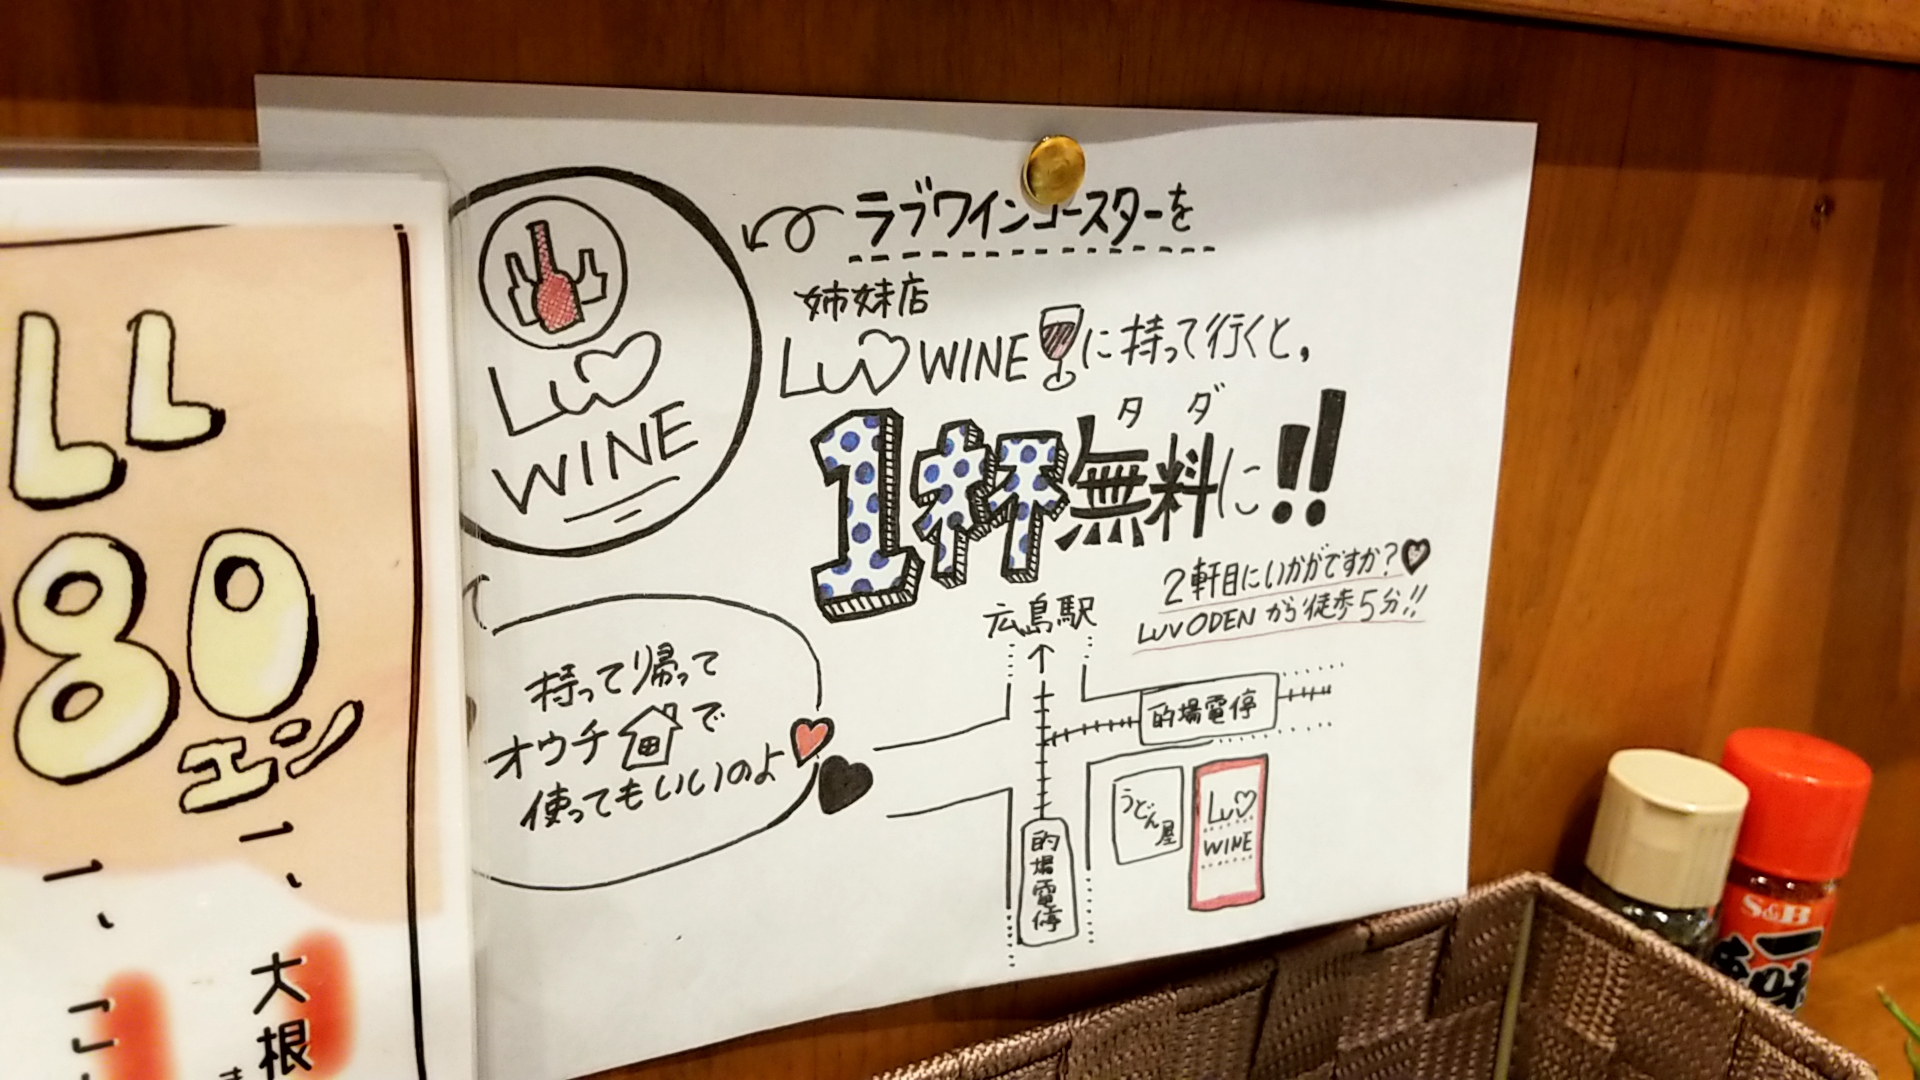 LL
80
エン
一、
一、
大根
こ
LUV
WINE
ラブワインコースターを
姉妹店
LUV WINEに持って行くと,
タダ
1杯無料に!!
2軒目にいかがですか?
LUV ODENから徒歩5分!!
持って帰って
オウチで
使ってもいいのよ
広島駅
↑
的場電停
的場電停
うどん屋
LUV
WINE
S&B
一味